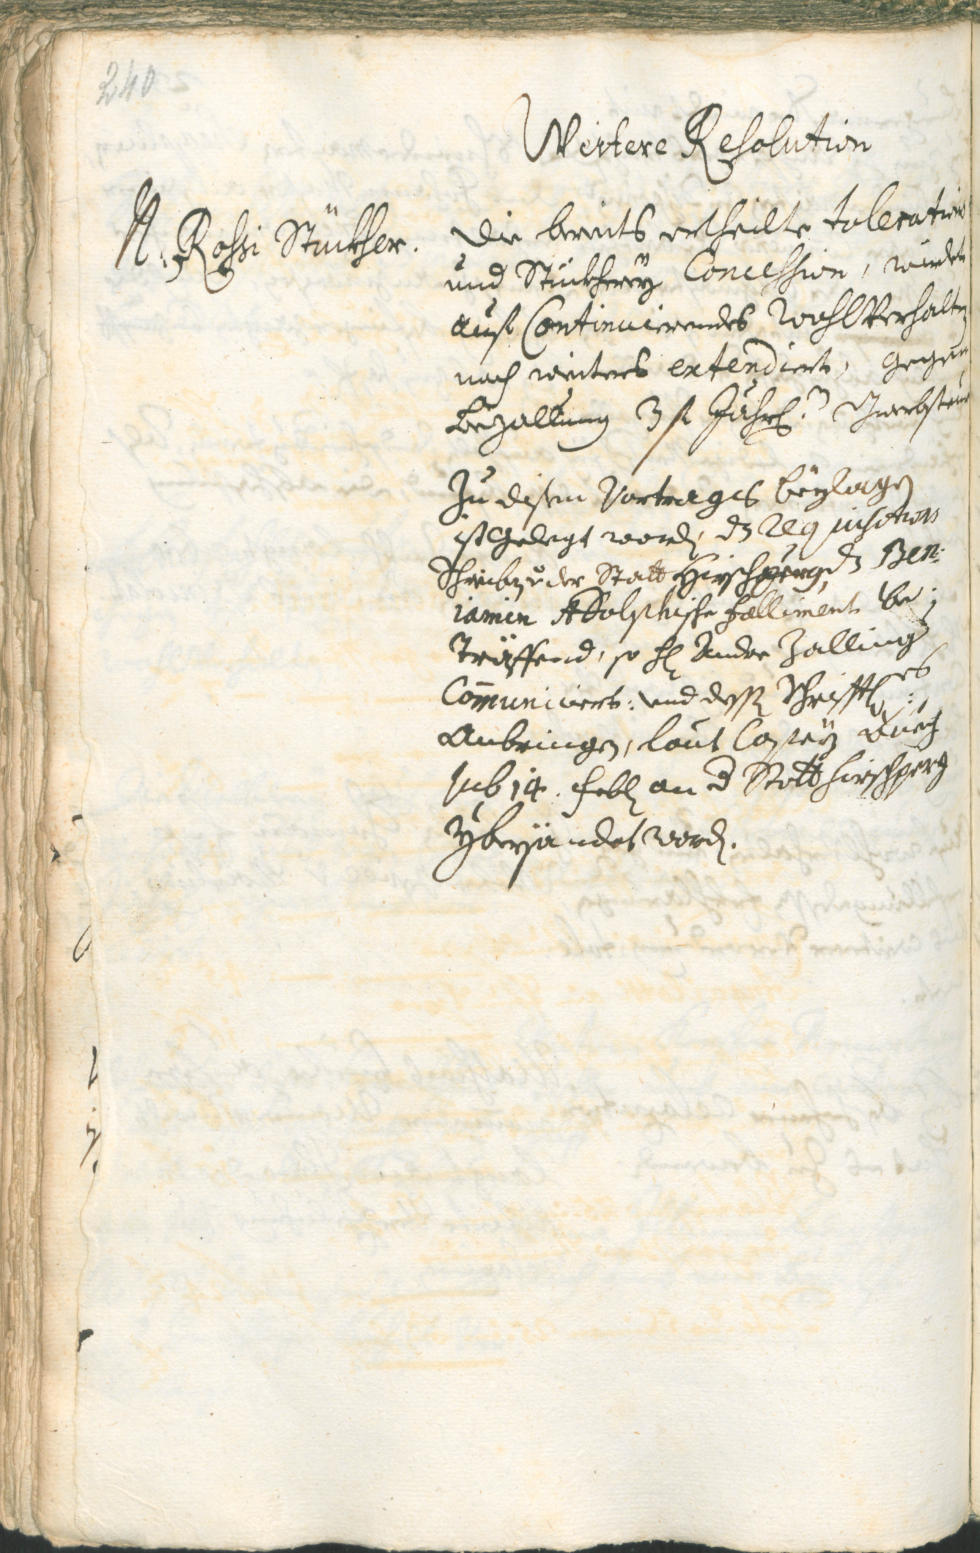 240
Weitere Resolution
N. Rossi Stückher.
Die bereits ertheilte toleration
und Stückherey Concession, würdet
auf Continuierendes Wohlverhalten
noch weiters extendiert, gegen
Bezallung 3 fl Jährl:
Zu disem Vortrages beylagen
ist gelegt word, dz Requisitions
Schreiben der Statt Hirschperg, dz Ben-
iamin Adolphische falliment be-
träffend, so H Andre Zalling
Communiciert: und dessen Schrifftl:es
Anbringen, laut Copey
sub 14. Feb: an d Statt Hirschperg
ybersändet word.